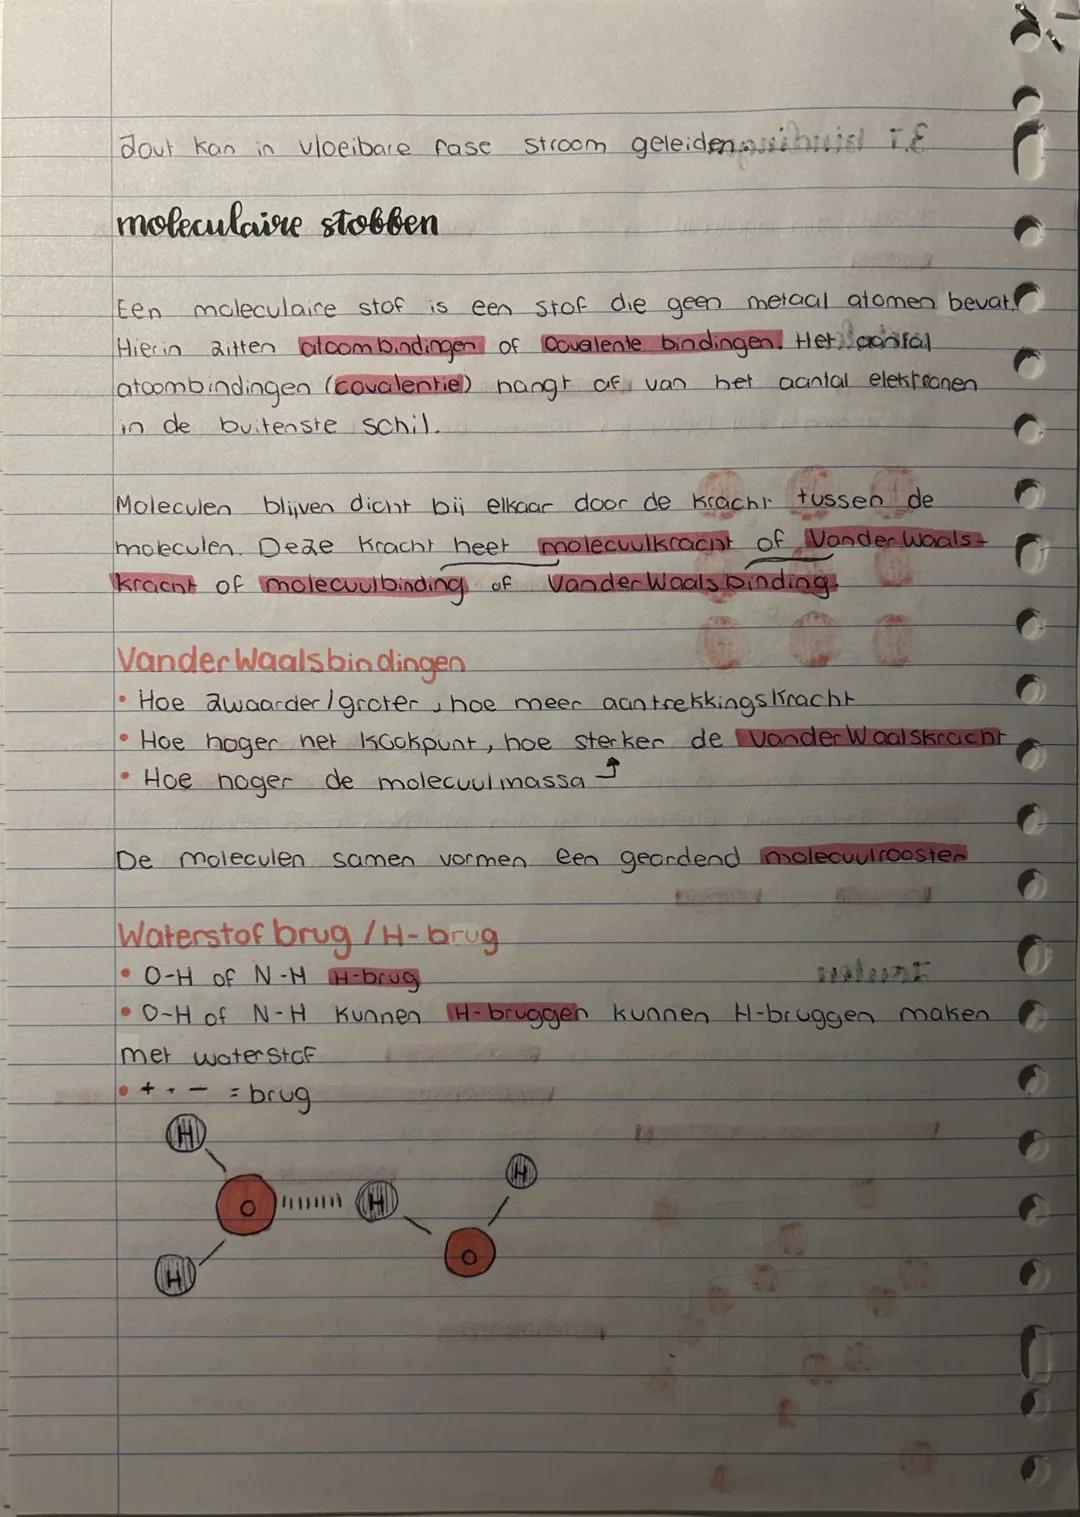 Zout kan in vloeibare fase stroom geleiden.
moleculaire stoffen
Een moleculaire stof is een stof die geen metaal atomen bevat.
Hierin zitten atoombindingen of Covalente bindingen. Het aantal
atoombindingen (covalentie) hangt af van het aantal elektronen
in de buitenste schil.
Moleculen blijven dicht bij elkaar door de kracht tussen de
moleculen. Deze kracht heet molecuulkracht of VanderWaals-
kracht of molecuulbinding of VanderWaalsbinding.
VanderWaalsbindingen
• Hoe zwaarder/groter, hoe meer aantrekkingskracht
• Hoe hoger het kookpunt, hoe sterker de VanderWaalskracht
• Hoe hoger de molecuulmassa
De moleculen samen vormen een geordend molecuulrooster
Waterstofbrug / H-brug
• O-H of N-H H-brug
• O-H of N-H kunnen H-bruggen kunnen H-bruggen maken
met waterstof
• + • - = brug
H
H
O
H
O
H